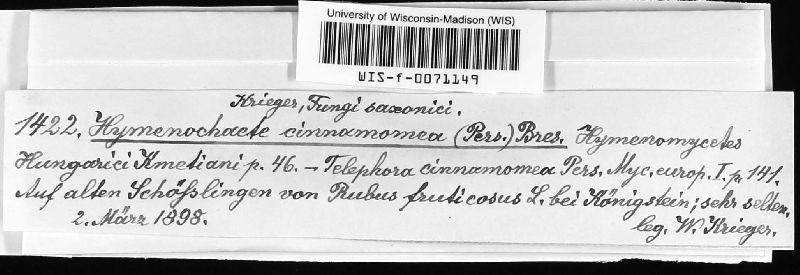 University of Wisconsin-Madison (WIS)
WIS-f-0071149
Krieger, Fungi saxonici.
1422. Hymenochaete cinnamomea (Pers.) Bres. Hymenomycetes
Hungarici Kmetiani p. 46. – Telephora cinnamomea Pers. Myc. europ. I. p. 141.
Auf alten Schößlingen von Rubus fruticosus L. bei Königstein; sehr selten.
2. März 1898.
leg. W. Krieger.